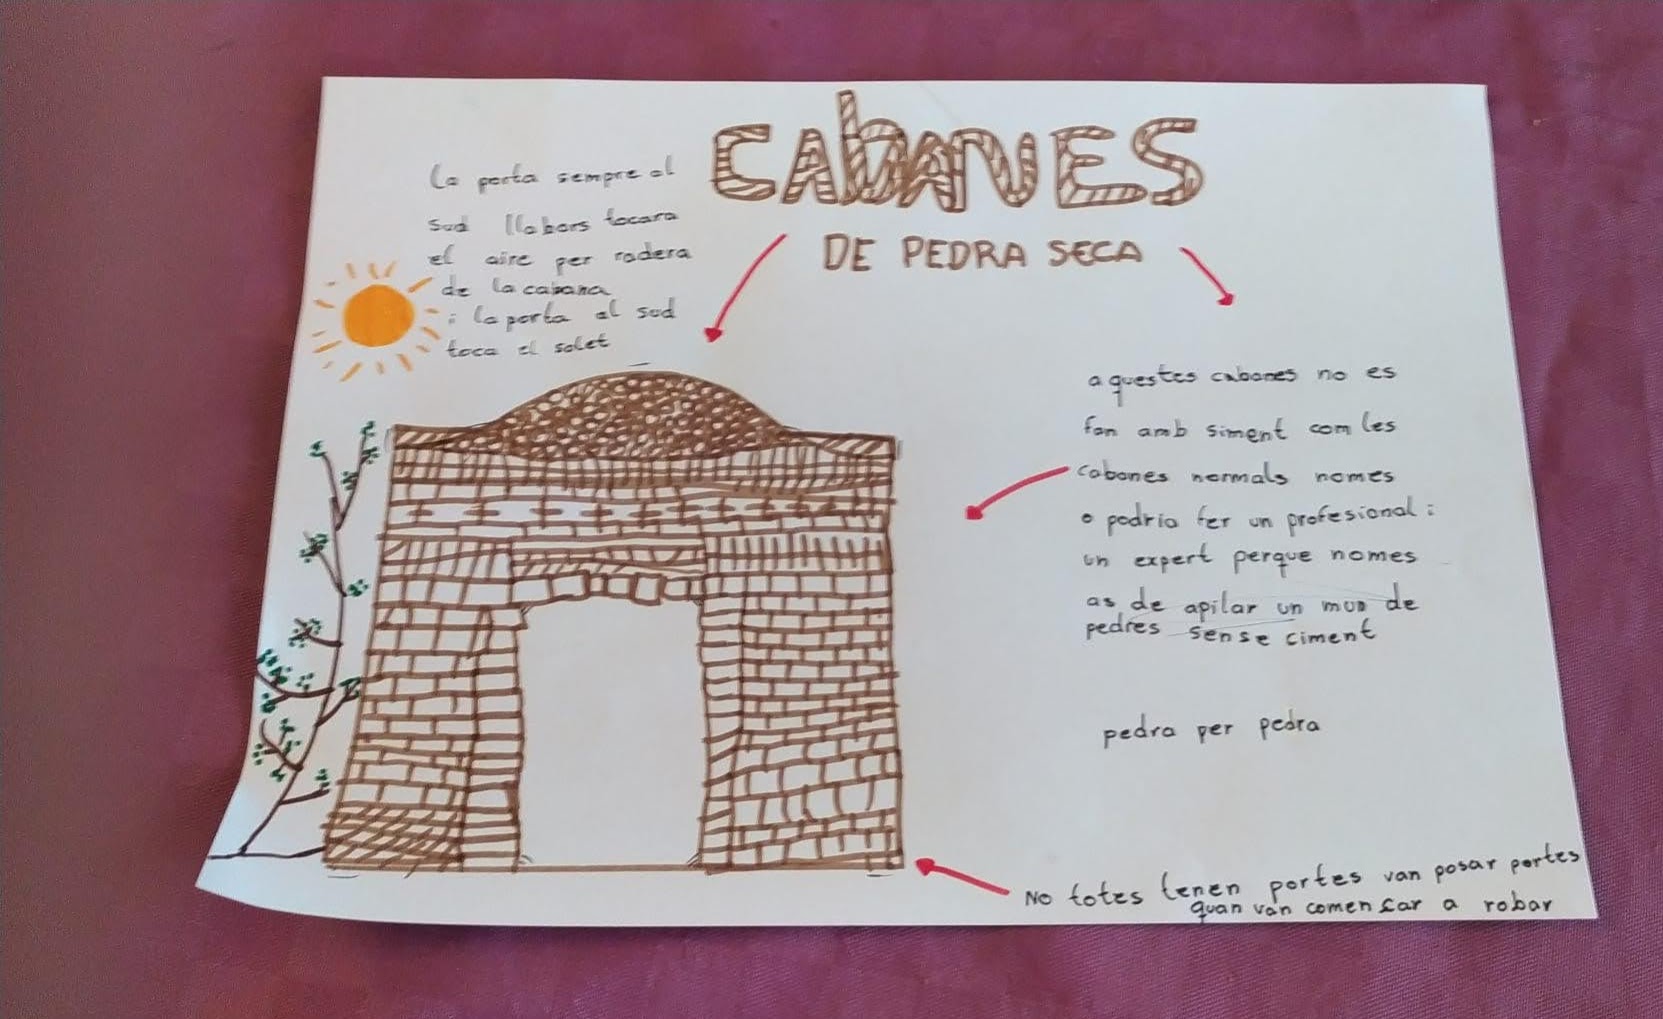 CAbANES
DE PEDRA SECA
La porta sempre al
sud llabors tocara
el aire per radera
de la cabana
i la porta al sud
toca el solet
aquestes cabanes no es
fan amb siment com les
cabanes normals nomes
o podria fer un profesional i
un expert perque nomes
as de apilar un mun de
pedres sense ciment
pedra per pedra
No totes tenen portes van posar portes
quan van comensar a robar